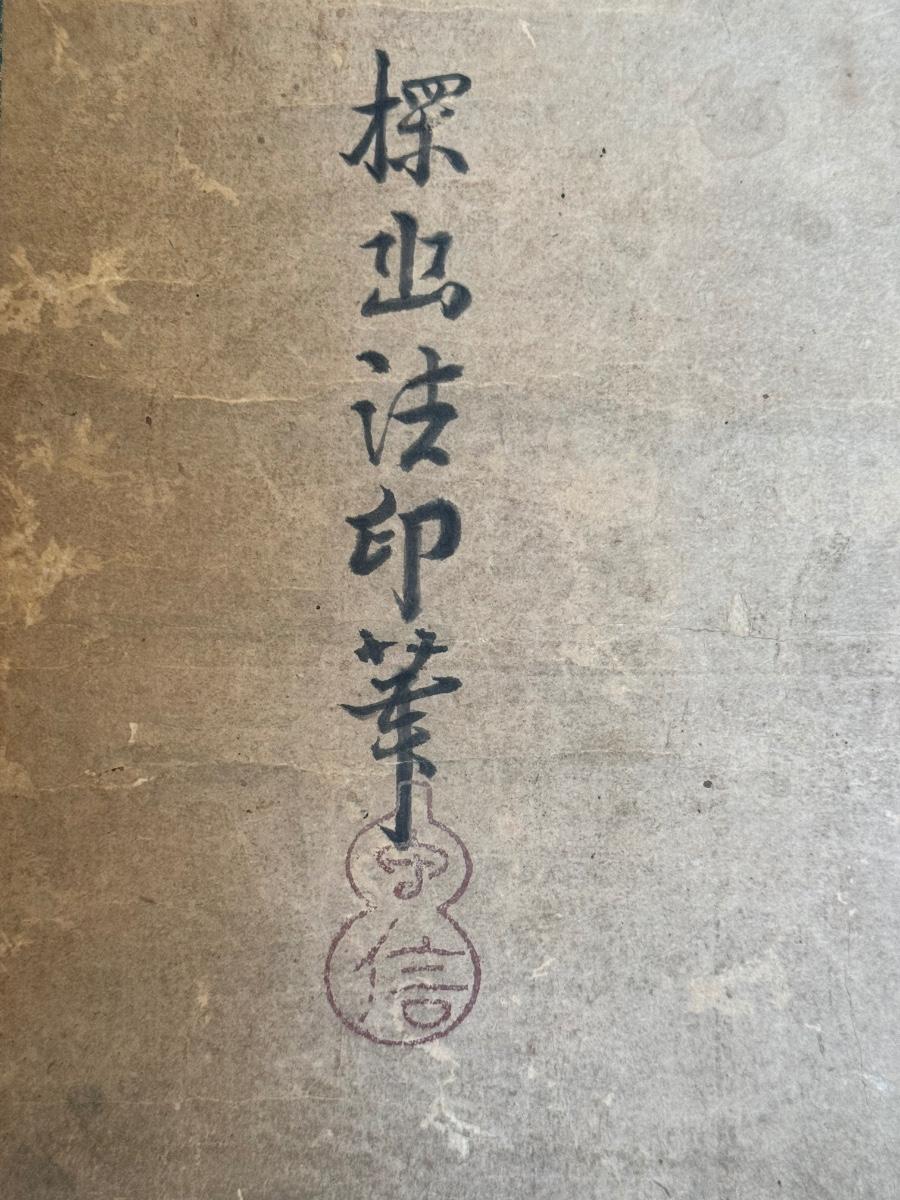 探幽法印筆
守信